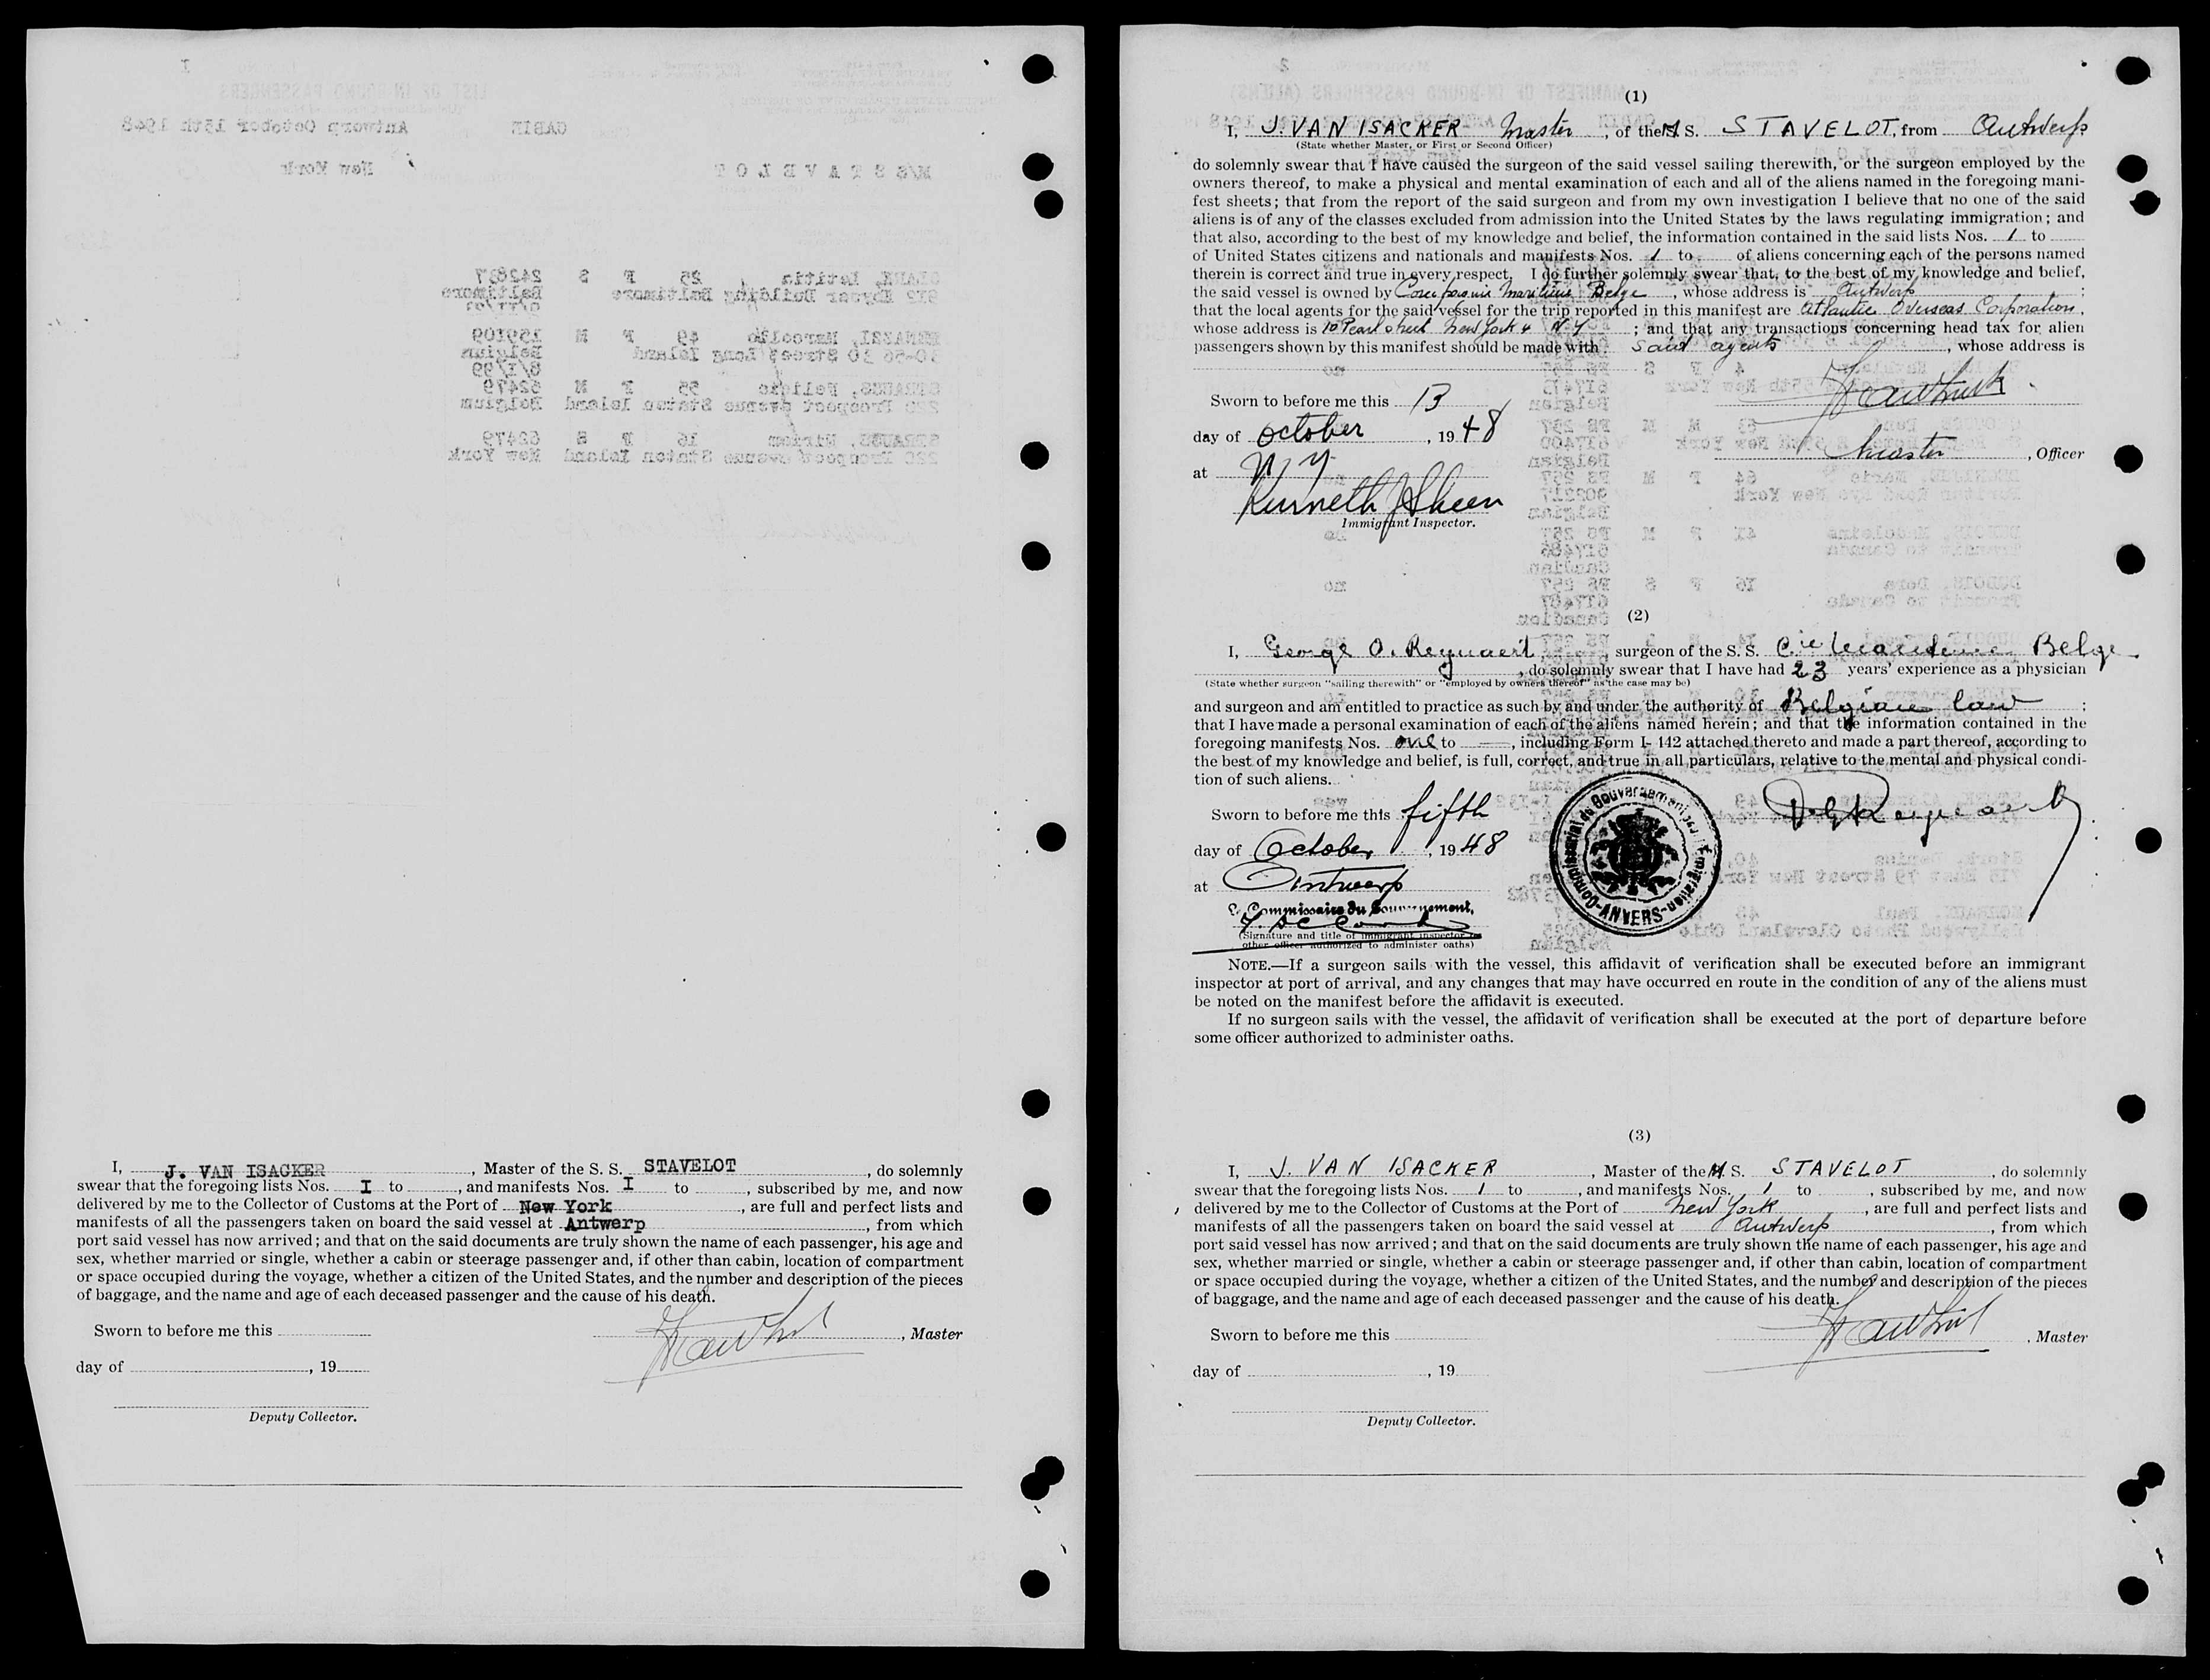 I, J. VAN ISACKER, Master of the S. S. STAVELOT, do solemnly
swear that the foregoing lists Nos. I to, and manifests Nos. I to, subscribed by me, and now
delivered by me to the Collector of Customs at the Port of New York, are full and perfect lists and
manifests of all the passengers taken on board the said vessel at Antwerp, from which
port said vessel has now arrived; and that on the said documents are truly shown the name of each passenger, his age and
sex, whether married or single, whether a cabin or steerage passenger and, if other than cabin, location of compartment
or space occupied during the voyage, whether a citizen of the United States, and the number and description of the pieces
of baggage, and the name and age of each deceased passenger and the cause of his death.
Sworn to before me this
, Master
day of, 19
Deputy Collector.
(1)
I, J. VAN ISACKER Master, of the M S. STAVELOT, from Antwerp
(State whether Master, or First or Second Officer)
do solemnly swear that I have caused the surgeon of the said vessel sailing therewith, or the surgeon employed by the
owners thereof, to make a physical and mental examination of each and all of the aliens named in the foregoing mani-
fest sheets; that from the report of the said surgeon and from my own investigation I believe that no one of the said
aliens is of any of the classes excluded from admission into the United States by the laws regulating immigration; and
that also, according to the best of my knowledge and belief, the information contained in the said lists Nos. 1 to
of United States citizens and nationals and manifests Nos. 1 to of aliens concerning each of the persons named
therein is correct and true in every respect. I do further solemnly swear that, to the best of my knowledge and belief,
the said vessel is owned by Compagnie Maritime Belge, whose address is Antwerp;
that the local agents for the said vessel for the trip reported in this manifest are Atlantic Overseas Corporation,
whose address is 10 Pearl street New York 4 N Y; and that any transactions concerning head tax for alien
passengers shown by this manifest should be made with said agents, whose address is
Sworn to before me this 13
day of October, 1948
Master, Officer
at N Y
Kenneth J Skeen
Immigrant Inspector.
(2)
I, George O. Reynaert, surgeon of the S. S. Cie Maritime Belge
, do solemnly swear that I have had 23 years' experience as a physician
(State whether surgeon "sailing therewith" or "employed by owners thereof" as the case may be)
and surgeon and am entitled to practice as such by and under the authority of Belgian law;
that I have made a personal examination of each of the aliens named herein; and that the information contained in the
foregoing manifests Nos. one to —, including Form I-142 attached thereto and made a part thereof, according to
the best of my knowledge and belief, is full, correct, and true in all particulars, relative to the mental and physical condi-
tion of such aliens.
Sworn to before me this fifth
day of October, 1948
at Antwerp
Commissariat du Gouvernement Emigration -ANVERS-
Le Commissaire du Gouvernement,
(Signature and title of immigrant inspector or
other officer authorized to administer oaths)
NOTE.—If a surgeon sails with the vessel, this affidavit of verification shall be executed before an immigrant
inspector at port of arrival, and any changes that may have occurred en route in the condition of any of the aliens must
be noted on the manifest before the affidavit is executed.
If no surgeon sails with the vessel, the affidavit of verification shall be executed at the port of departure before
some officer authorized to administer oaths.
(3)
I, J. VAN ISACKER, Master of the M. S. STAVELOT, do solemnly
swear that the foregoing lists Nos. 1 to, and manifests Nos. 1 to, subscribed by me, and now
delivered by me to the Collector of Customs at the Port of New York, are full and perfect lists and
manifests of all the passengers taken on board the said vessel at Antwerp, from which
port said vessel has now arrived; and that on the said documents are truly shown the name of each passenger, his age and
sex, whether married or single, whether a cabin or steerage passenger and, if other than cabin, location of compartment
or space occupied during the voyage, whether a citizen of the United States, and the number and description of the pieces
of baggage, and the name and age of each deceased passenger and the cause of his death.
Sworn to before me this
, Master
day of, 19
Deputy Collector.